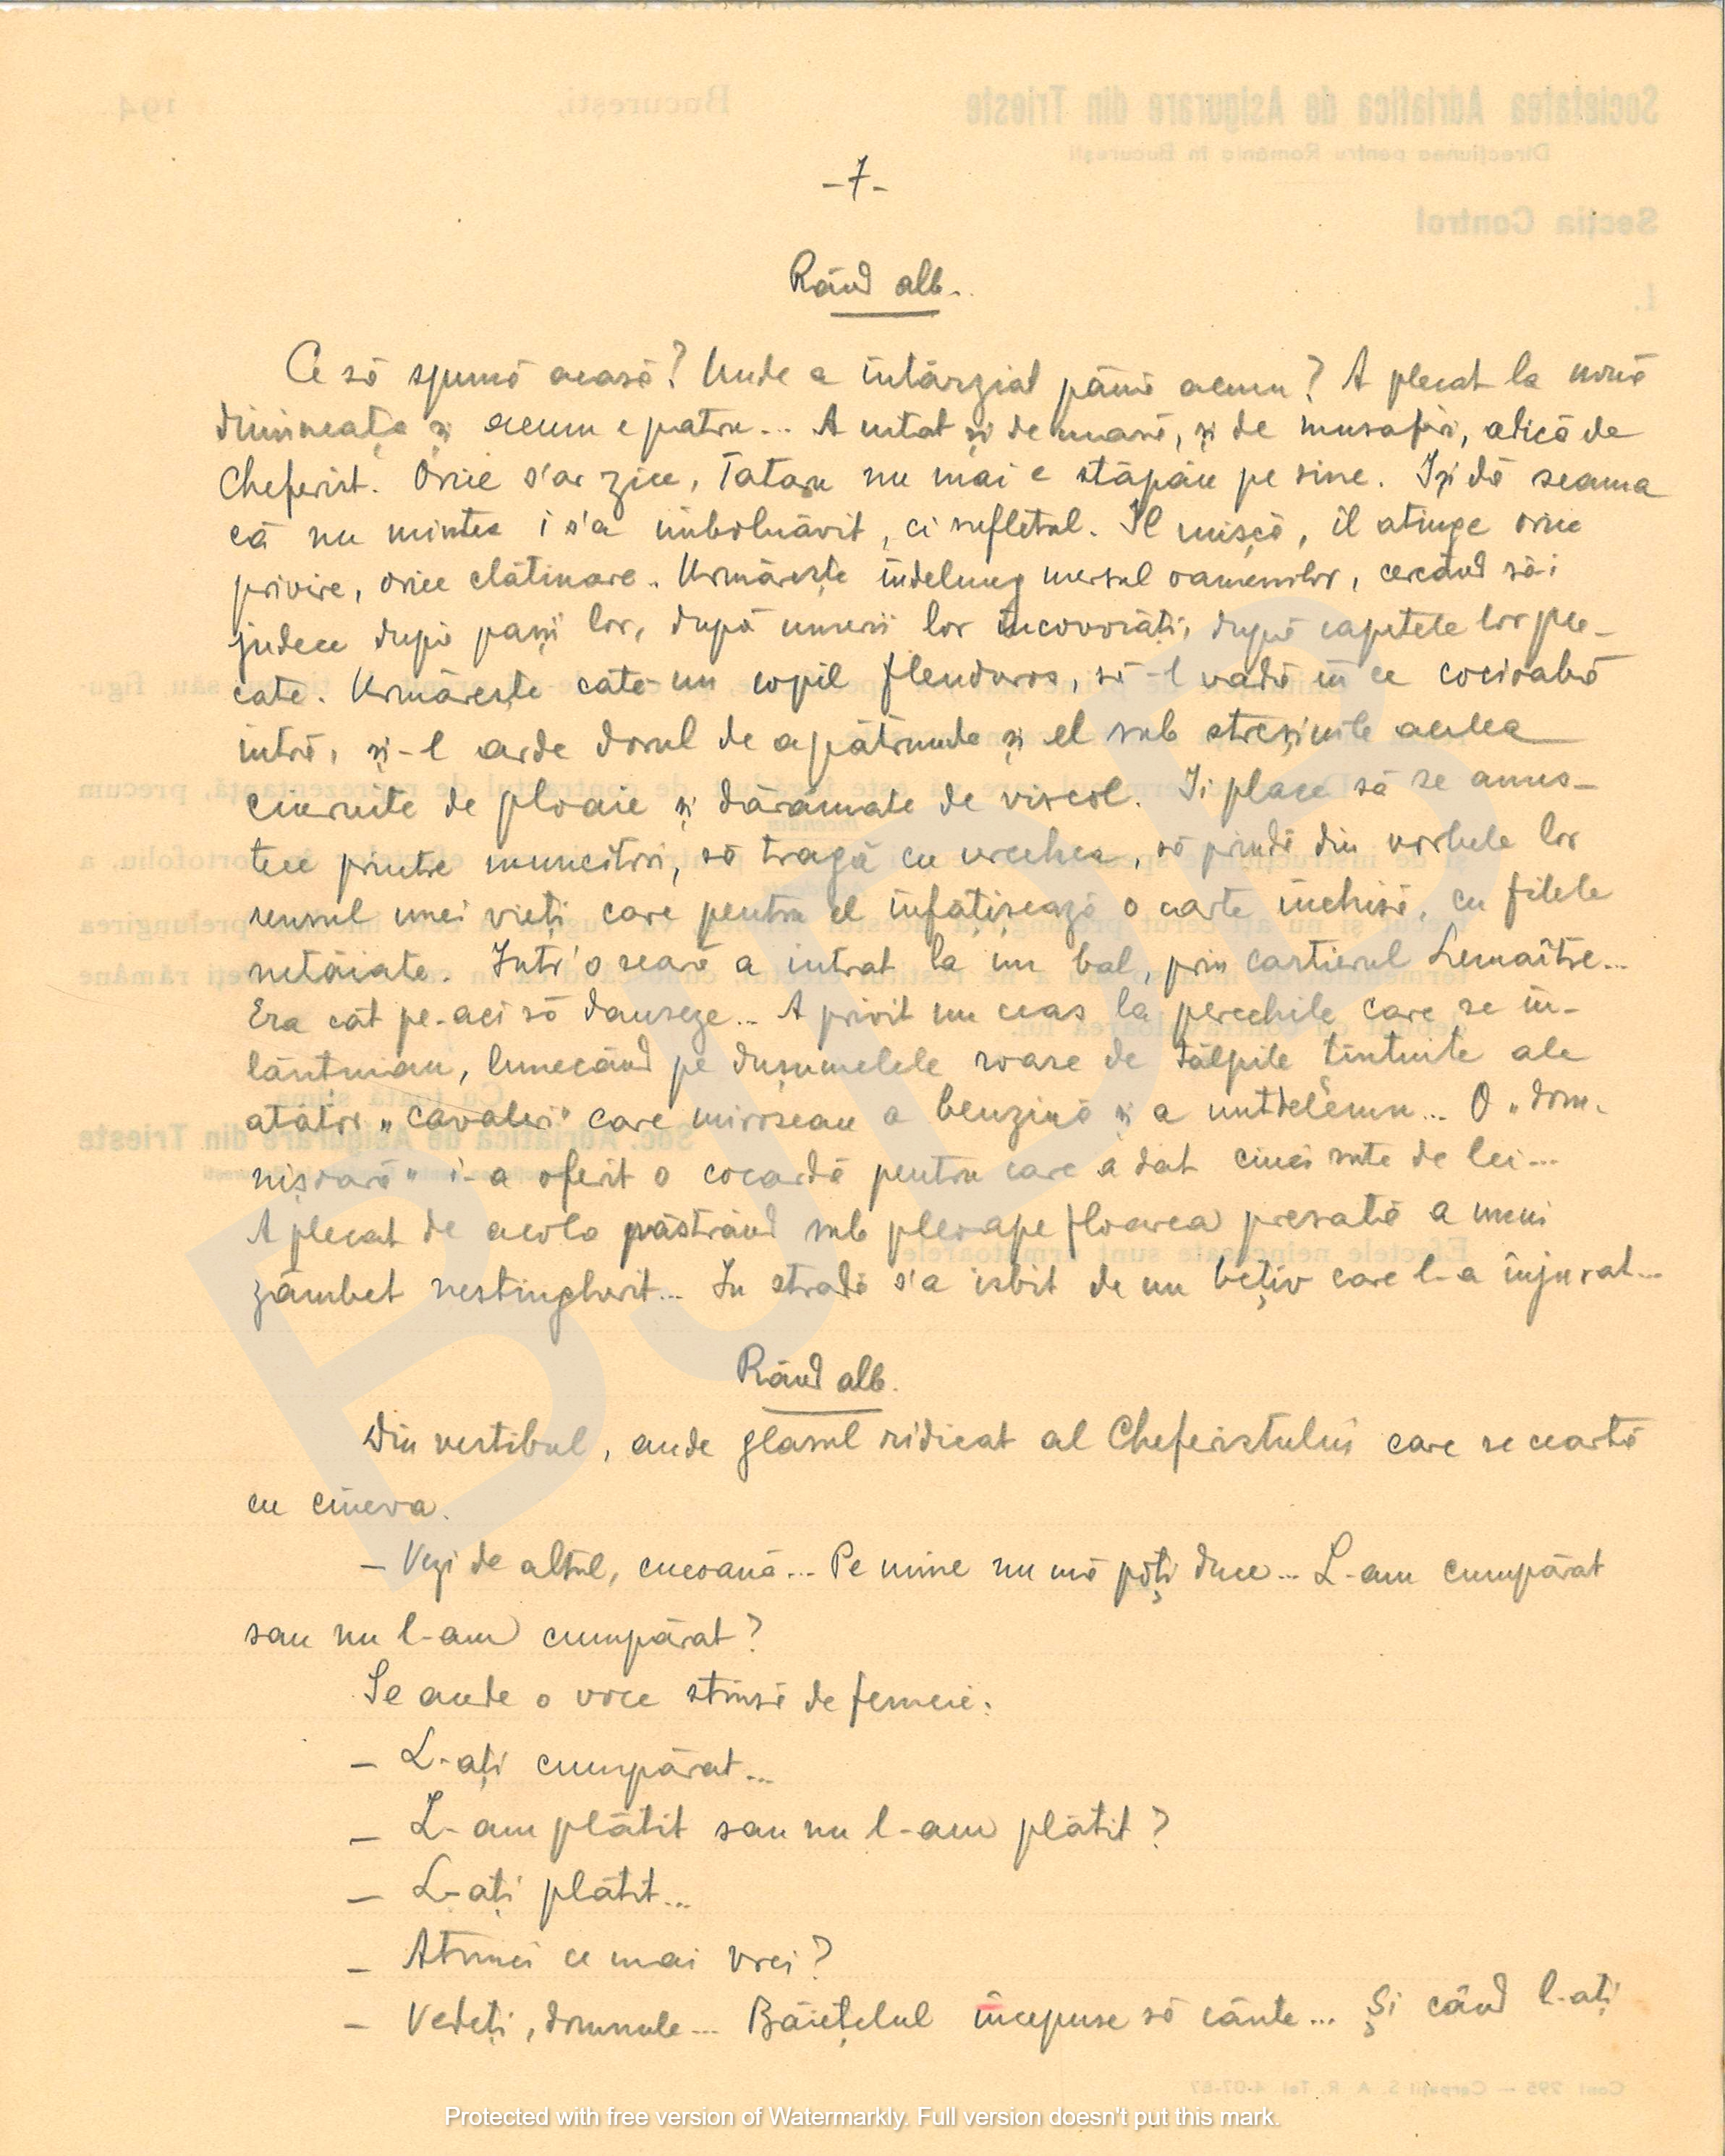 -7-
Rând alb.
Ce să spună acasă? Unde a întârziat până acum? A plecat la nouă
dimineața și acum e patru... A uitat și de masă, și de musafiri, adică de
Cheferist. Orice s'ar zice, Tataru nu mai e stăpân pe sine. Iși dă seama
că nu mintea i s'a îmbolnăvit, ci sufletul. Îl mișcă, îl atinge orice
privire, orice clătinare. Urmărește îndelung mersul oamenilor, cercând să-i
judece după pașii lor, după umerii lor încovoiați, după capetele lor ple-
cate. Urmărește câte-un copil flenduros, să-l vadă în ce cocioabă
intră, și-l arde dorul de a pătrunde și el sub streșinile acelea
ciuruite de ploaie și dărâmate de viscol. Ii place să se ames-
tece printre muncitori, să tragă cu urechea, să prindă din vorbele lor
sensul unei vieți care pentru el înfățișează o carte închisă, cu filele
netăiate. Intr'o seară a intrat la un bal, prin cartierul Lemaître...
Era cât pe-aci să danseze... A privit un ceas la perechile care se în-
lănțuiau, lunecând pe dușumelele roase de tălpile țintuite ale
atâtor „cavaleri" care miroseau a benzină și a untdelemn... O „dom-
nișoară" i-a oferit o cocardă pentru care a dat cinci sute de lei...
A plecat de acolo păstrând sub pleoape floarea presată a unui
zâmbet nestingherit... In stradă s'a isbit de un bețiv care l-a înjurat...
Rând alb.
Din vestibul, aude glasul ridicat al Cheferistului care se ceartă
cu cineva.
- Vezi de altul, cucoană... Pe mine nu mă poți duce... L-am cumpărat
sau nu l-am cumpărat?
Se aude o voce stinsă de femeie:
- L-ați cumpărat...
- L-am plătit sau nu l-am plătit?
- L-ați plătit...
- Atunci ce mai vrei?
- Vedeți, domnule... Băiețelul începuse să cânte... Și când l-ați
Protected with free version of Watermarkly. Full version doesn't put this mark.